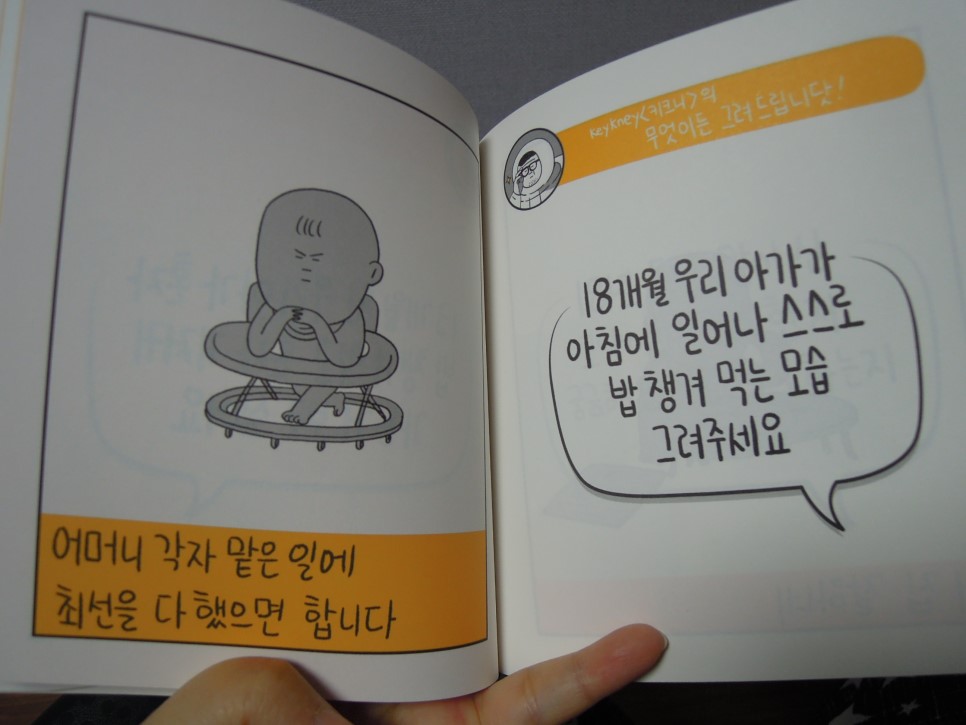 어머니 각자 맡은 일에
최선을 다 했으면 합니다
keykney<키크니>의
무엇이든 그려드립니닷!
18개월 우리 아가가
아침에 일어나 스스로
밥 챙겨 먹는 모습
그려주세요